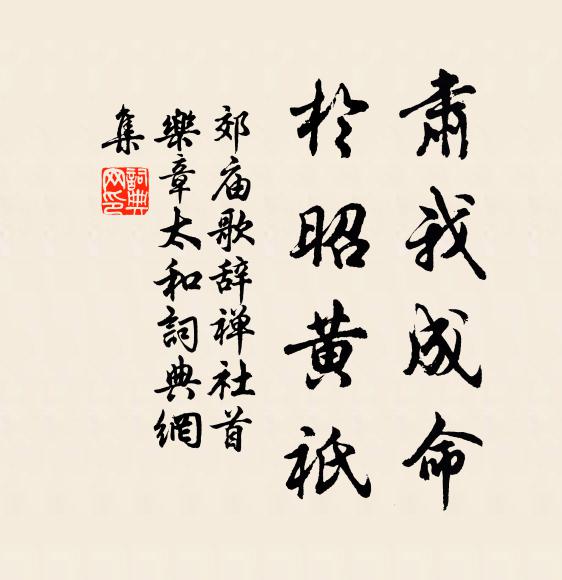 肅我成命
於昭黄祇
郊庙歌辞禅社首
樂章太和詞典網
集
詞典
网印